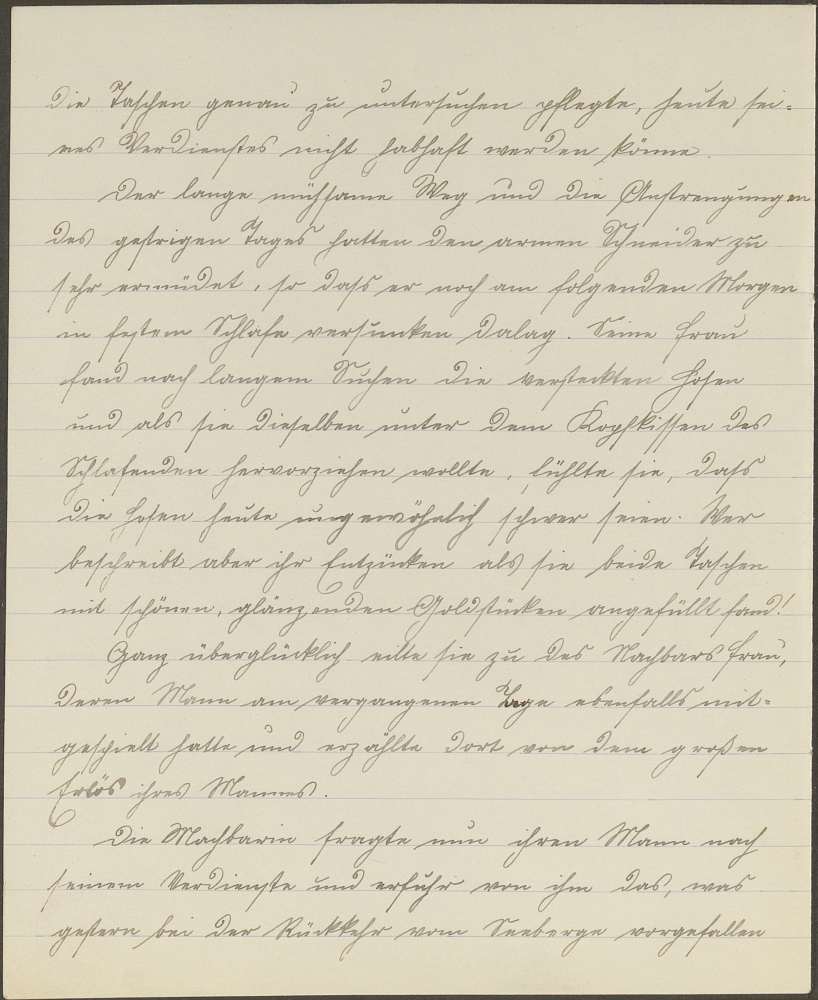 die Taschen genau zu untersuchen pflegte, heute sei=
nes Verdienstes nicht habhaft werden könne.
Der lange mühsame Weg und die Anstrengungen
des gestrigen Tages hatten den armen Schneider zu
sehr ermüdet, so dass er noch am folgenden Morgen
in festem Schlafe versunken dalag. Seine Frau
fand nach langem Suchen die versteckten Hosen
und als sie dieselben unter dem Kopfkissen des
Schlafenden hervorziehen wollte, fühlte sie, dass
die Hosen heute ungewöhnlich schwer seien. Wer
beschreibt aber ihr Entzücken als sie beide Taschen
mit schönen, glänzenden Goldstücken angefüllt fand!
Ganz überglücklich eilte sie zu des Nachbars Frau,
deren Mann am vergangenen Tage ebenfalls mit=
gespielt hatte und erzählte dort von dem großen
Erlös ihres Mannes.
Die Nachbarin fragte nun ihren Mann nach
seinem Verdienste und erfuhr von ihm das, was
gestern bei der Rückkehr vom Seeberge vorgefallen